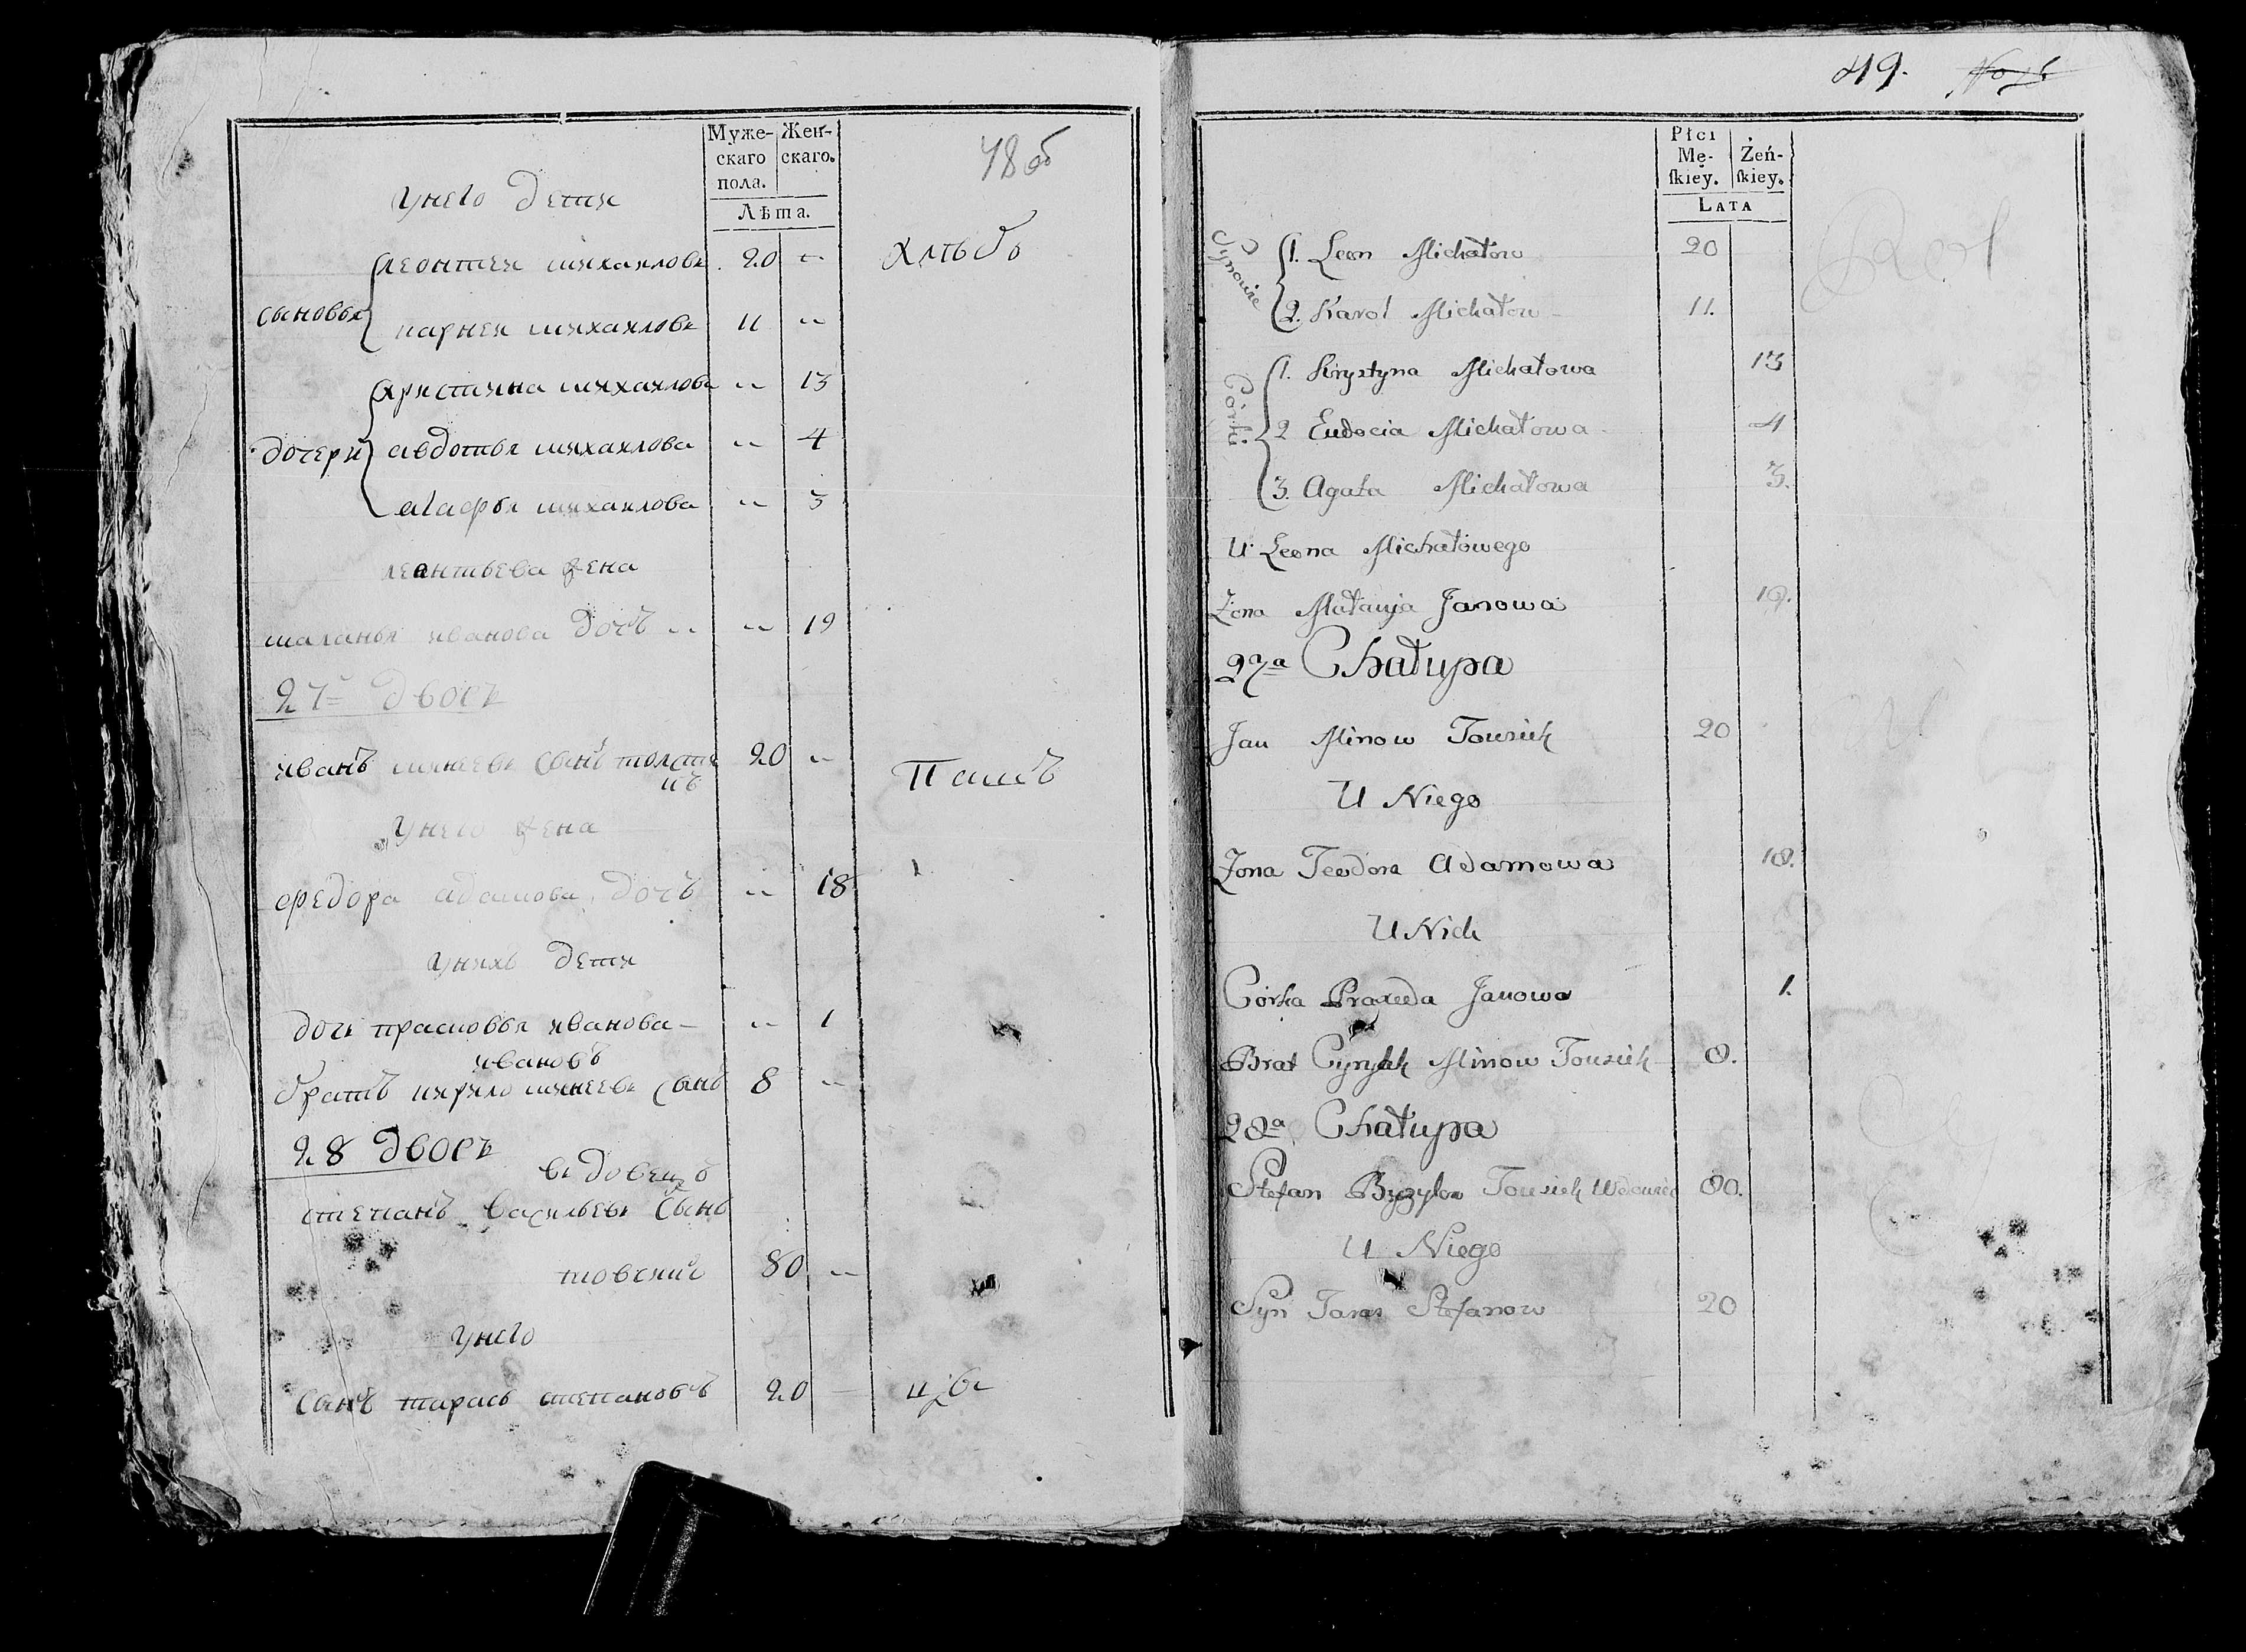 Муже-
скаго
пола.
Жен-
скаго.
Лѣта.
48 об
унего дети
сыновья
леонтеи михаиловъ 20 --
карнеи михаиловъ 11 --
дочери
христина михаилова -- 13
авдотья михаилова -- 4
агафья михаилова -- 3
леантьева жена
маланья иванова дочъ -- -- 19
27й дворъ
иванъ минеевъ сынъ 20 --
унего жена
федора адамова дочъ -- 18
унихъ дети
дочь прасковья иванова -- 1
ивановъ
братъ кирило минеевъ сынъ 8 --
28 дворъ
вдовецъ
степанъ васильевъ сынъ
80 --
унего
сынъ тарасъ степановъ 20
49.
Płci
Mę-
ſkiey.
Żeń-
ſkiey.
LATA
Synowie
1. Leon Michałow 20
2. Karol Michałow 11.
Córki
1. Krystyna Michałowa 13
2 Eudocia Michałowa 4
3. Agata Michałowa 3.
U Leona Michałowego
Żona Małanja Janowa 19.
27a Chałupa
Jan Minow Towsiek 20
U Niego
Żona Teodora Adamowa 18.
U Nich
Córka Praxeda Janowa 1.
Brat Cyryłł Minow Towsiek 8.
28a Chałupa
Stefan Bazylow Towsiek Wdowiec 80.
U Niego
Syn Taras Stefanow 20